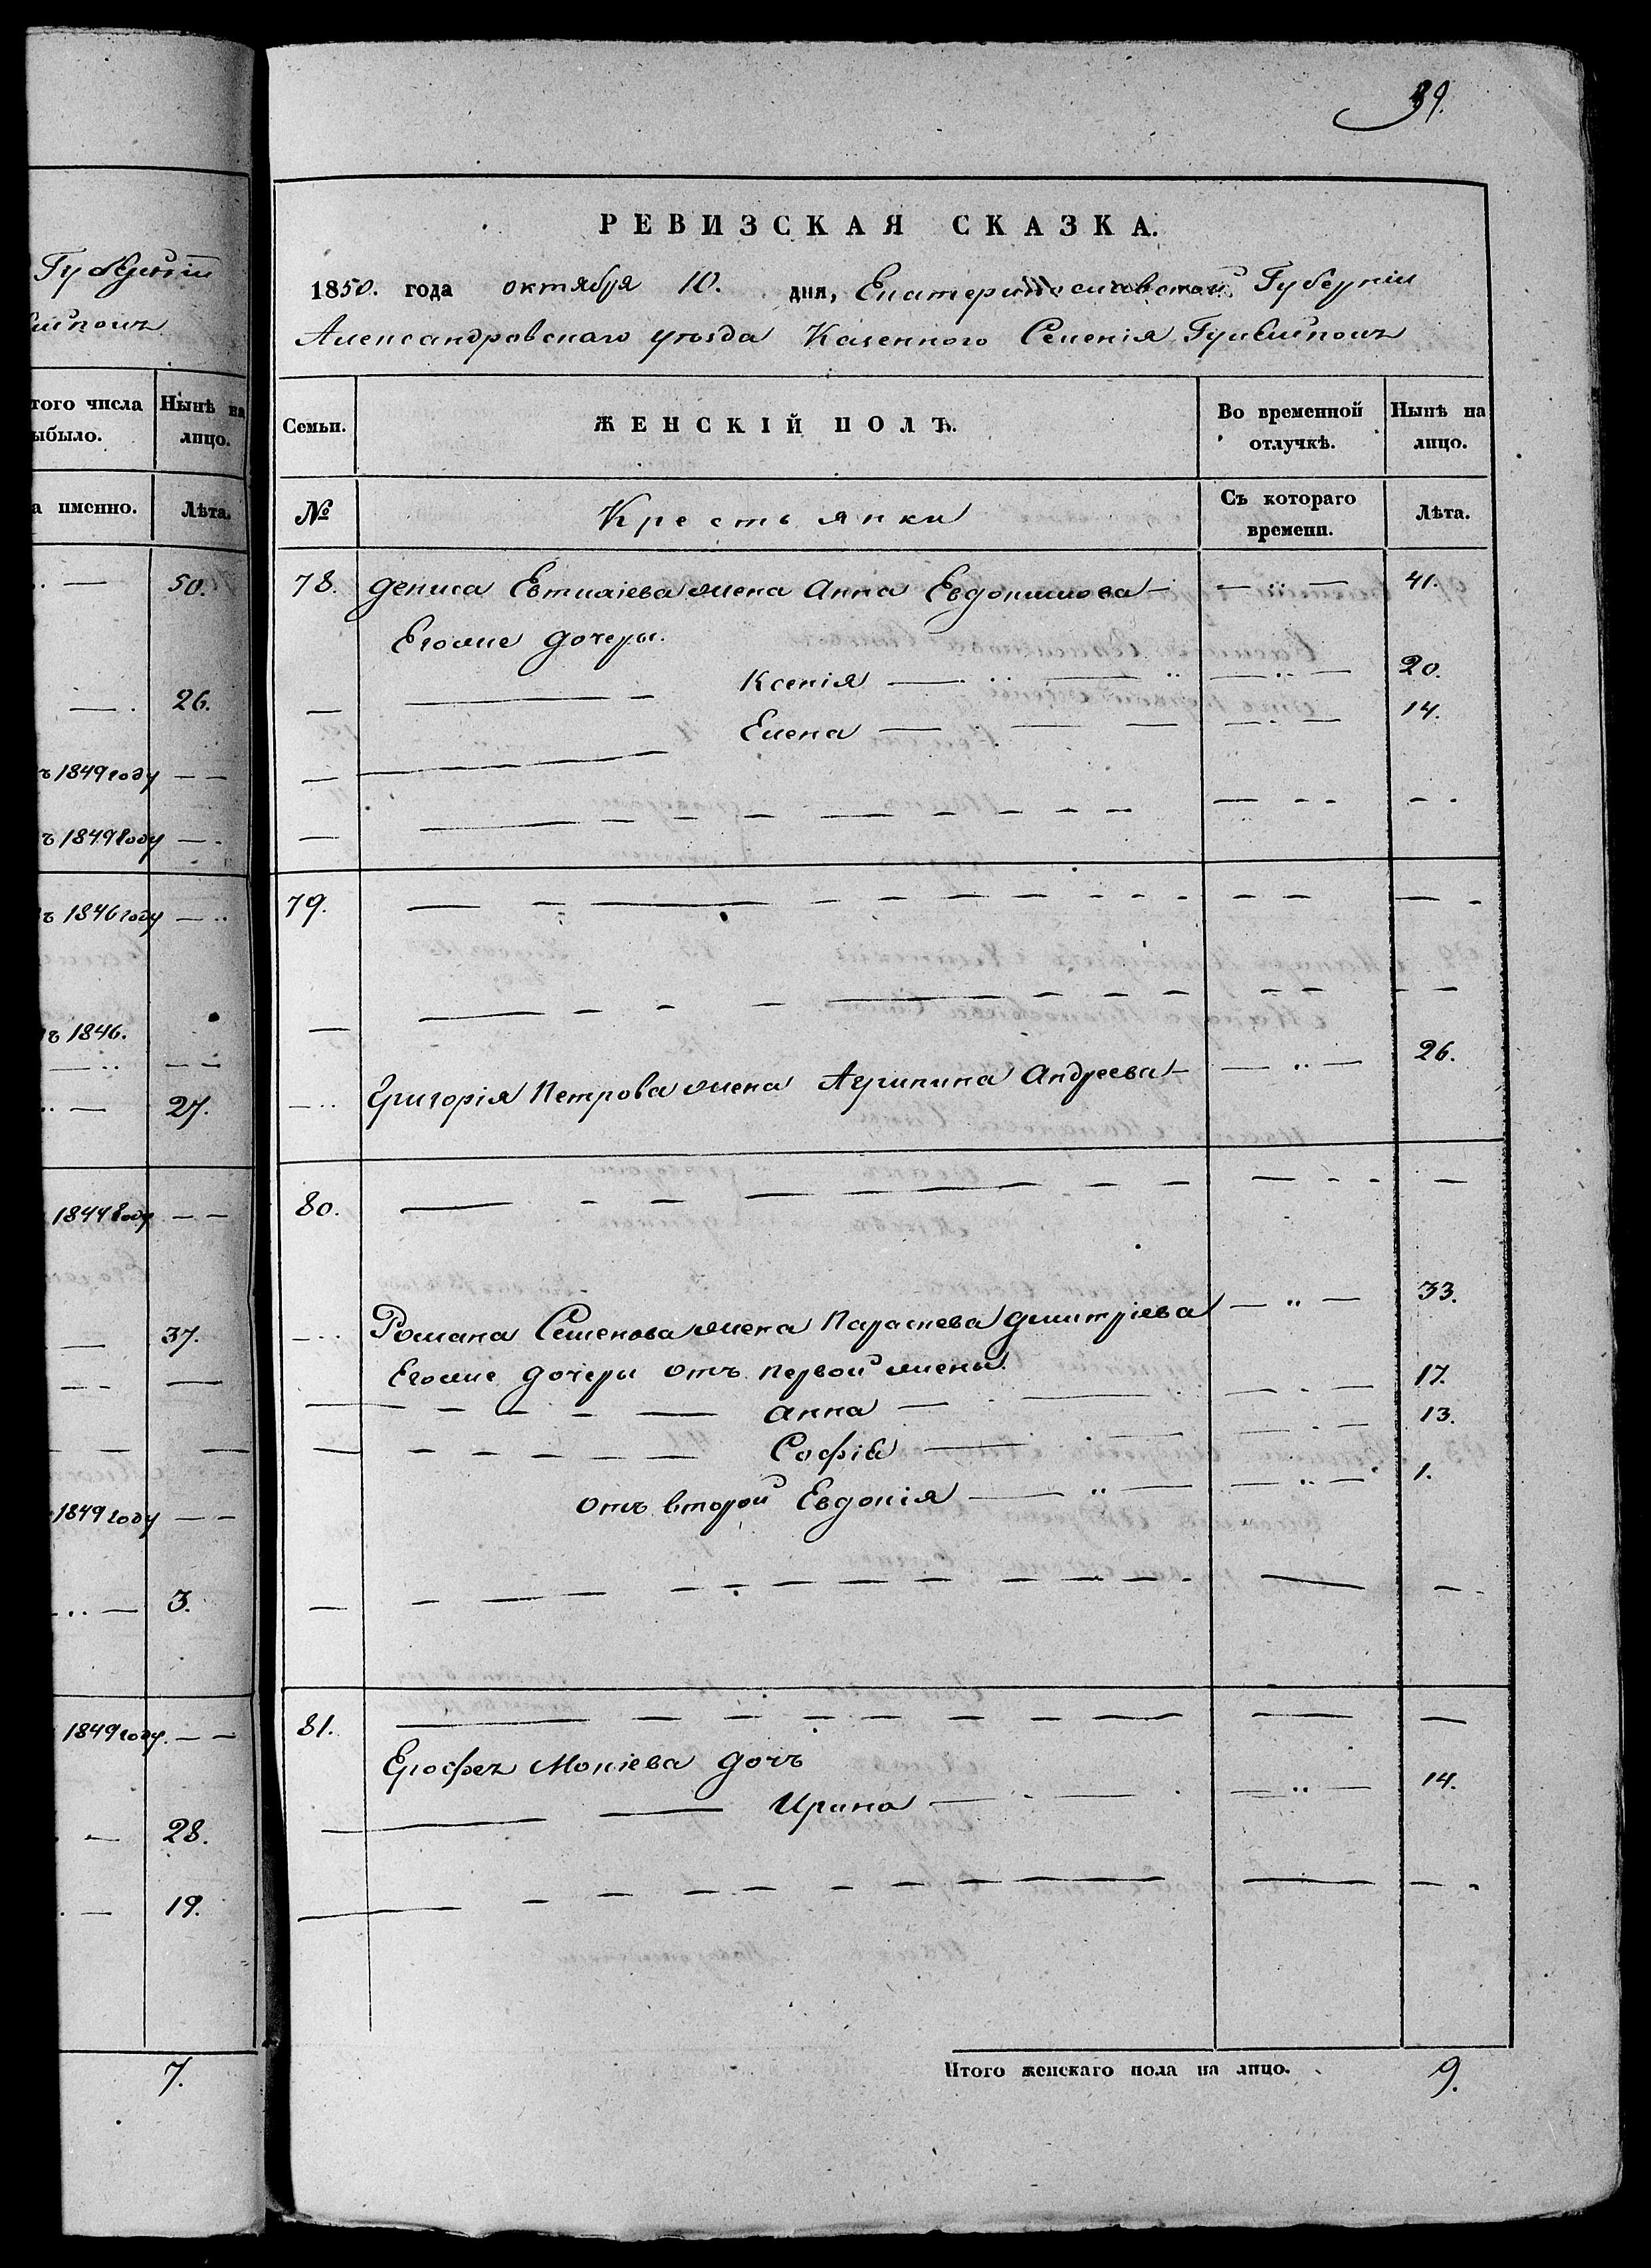 39.
Губерніи
того числа
ыбыло.
Нынѣ на
лицо.
а именно.
Лѣта.
50.
26.
ъ 1849 году
ъ 1849 году
ъ 1846 году
ъ 1846.
27.
1844 году
37.
1849 году
3.
1849 году.
28.
19.
7.
РЕВИЗСКАЯ СКАЗКА.
1850. года октября 10. дня, Екатеринославской Губерніи
Александровскаго уѣзда Казенного Селенія Гуляйполь
Семьи.
ЖЕНСКІЙ ПОЛЪ.
Во временной
отлучкѣ.
Нынѣ на
лицо.
№
Крестьянки
Съ котораго
времени.
Лѣта.
78. Дениса Евтихіева жена Анна Евдокимова — 41.
Егоже дочери.
Ксенія 20.
Елена 14.
79.
Григорія Петрова жена Агрипина Андреева — 26.
80.
Романа Семенова жена Параскева Дмитріева 33.
Егоже дочери отъ первой жены.
Анна 17.
Софія 13.
отъ второй Евдокія 1.
81.
Ерофея Мокіева дочь
Ирина 14.
Итого женскаго пола на лицо. 9.